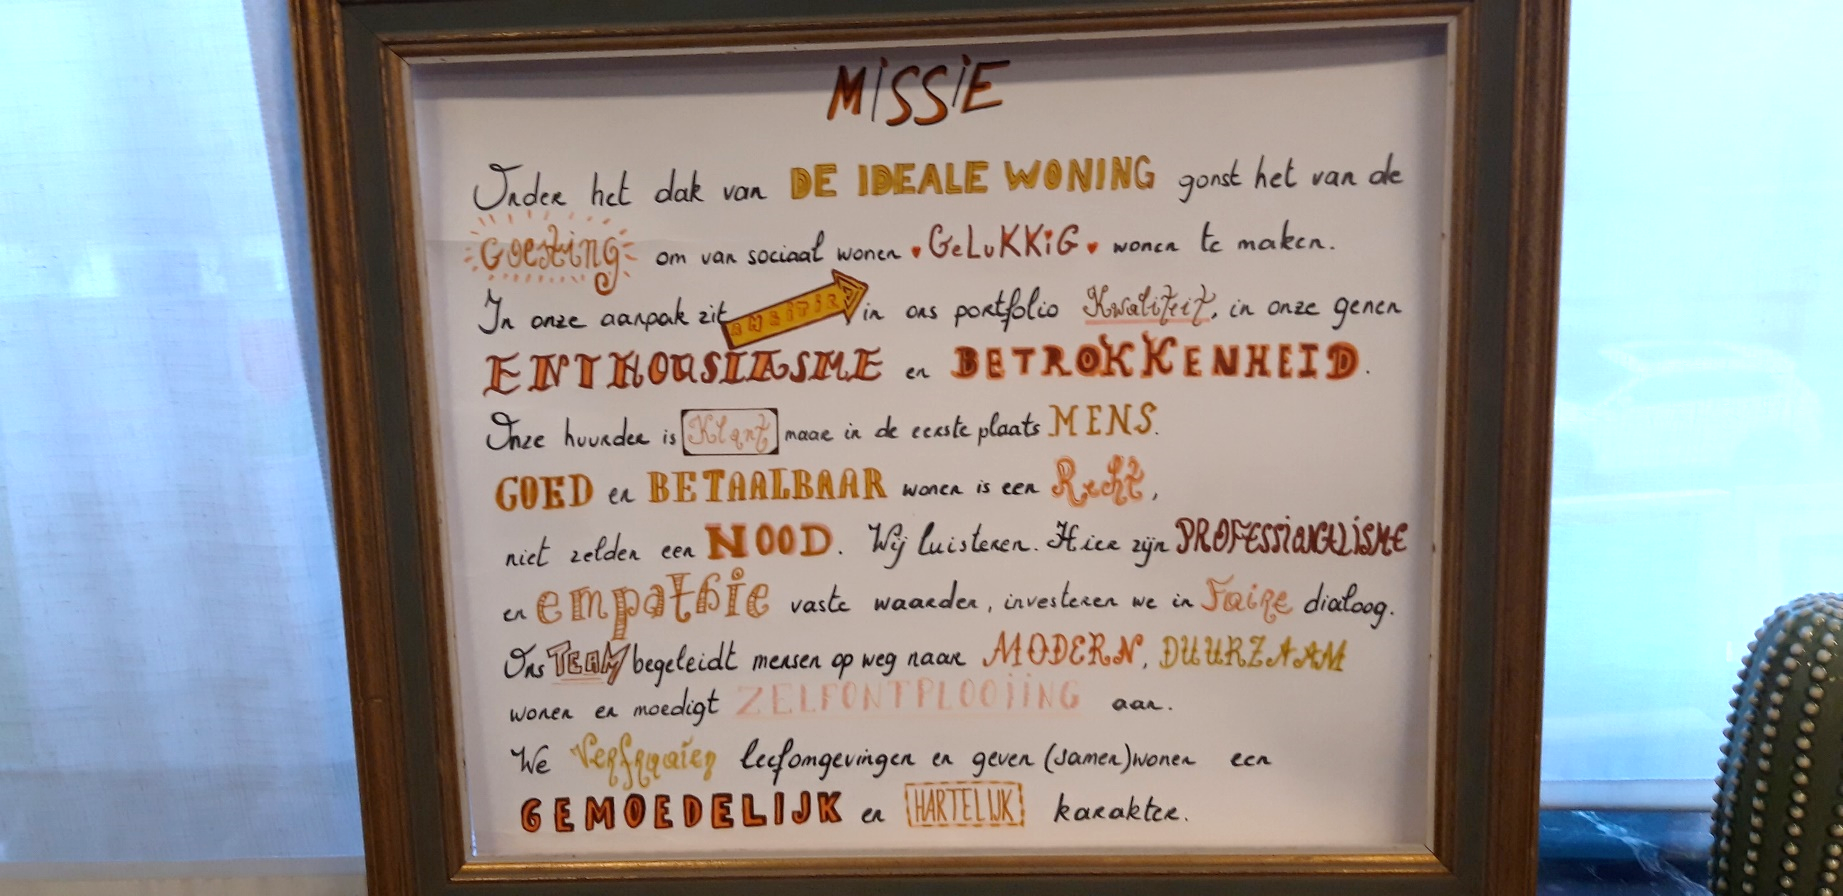 MiSSiE
Onder het dak van DE IDEALE WONING gonst het van de
Goesting om van sociaal wonen GeLuKKiG wonen te maken.
In onze aanpak zit AMBITIE, in ons portfolio Kwaliteit, in onze genen
ENTHOUSIASME en BETROKKENHEID.
Onze huurder is Klant maar in de eerste plaats MENS.
GOED en BETAALBAAR wonen is een Recht,
niet zelden een NOOD. Wij luisteren. Hier zijn PROFESSIONALISME
en empathie vaste waarden, investeren we in Faire dialoog.
Ons TEAM begeleidt mensen op weg naar MODERN, DUURZAAM
wonen en moedigt ZELFONTPLOOIING aan.
We Verfraaien leefomgevingen en geven (samen)wonen een
GEMOEDELIJK en HARTELIJK karakter.